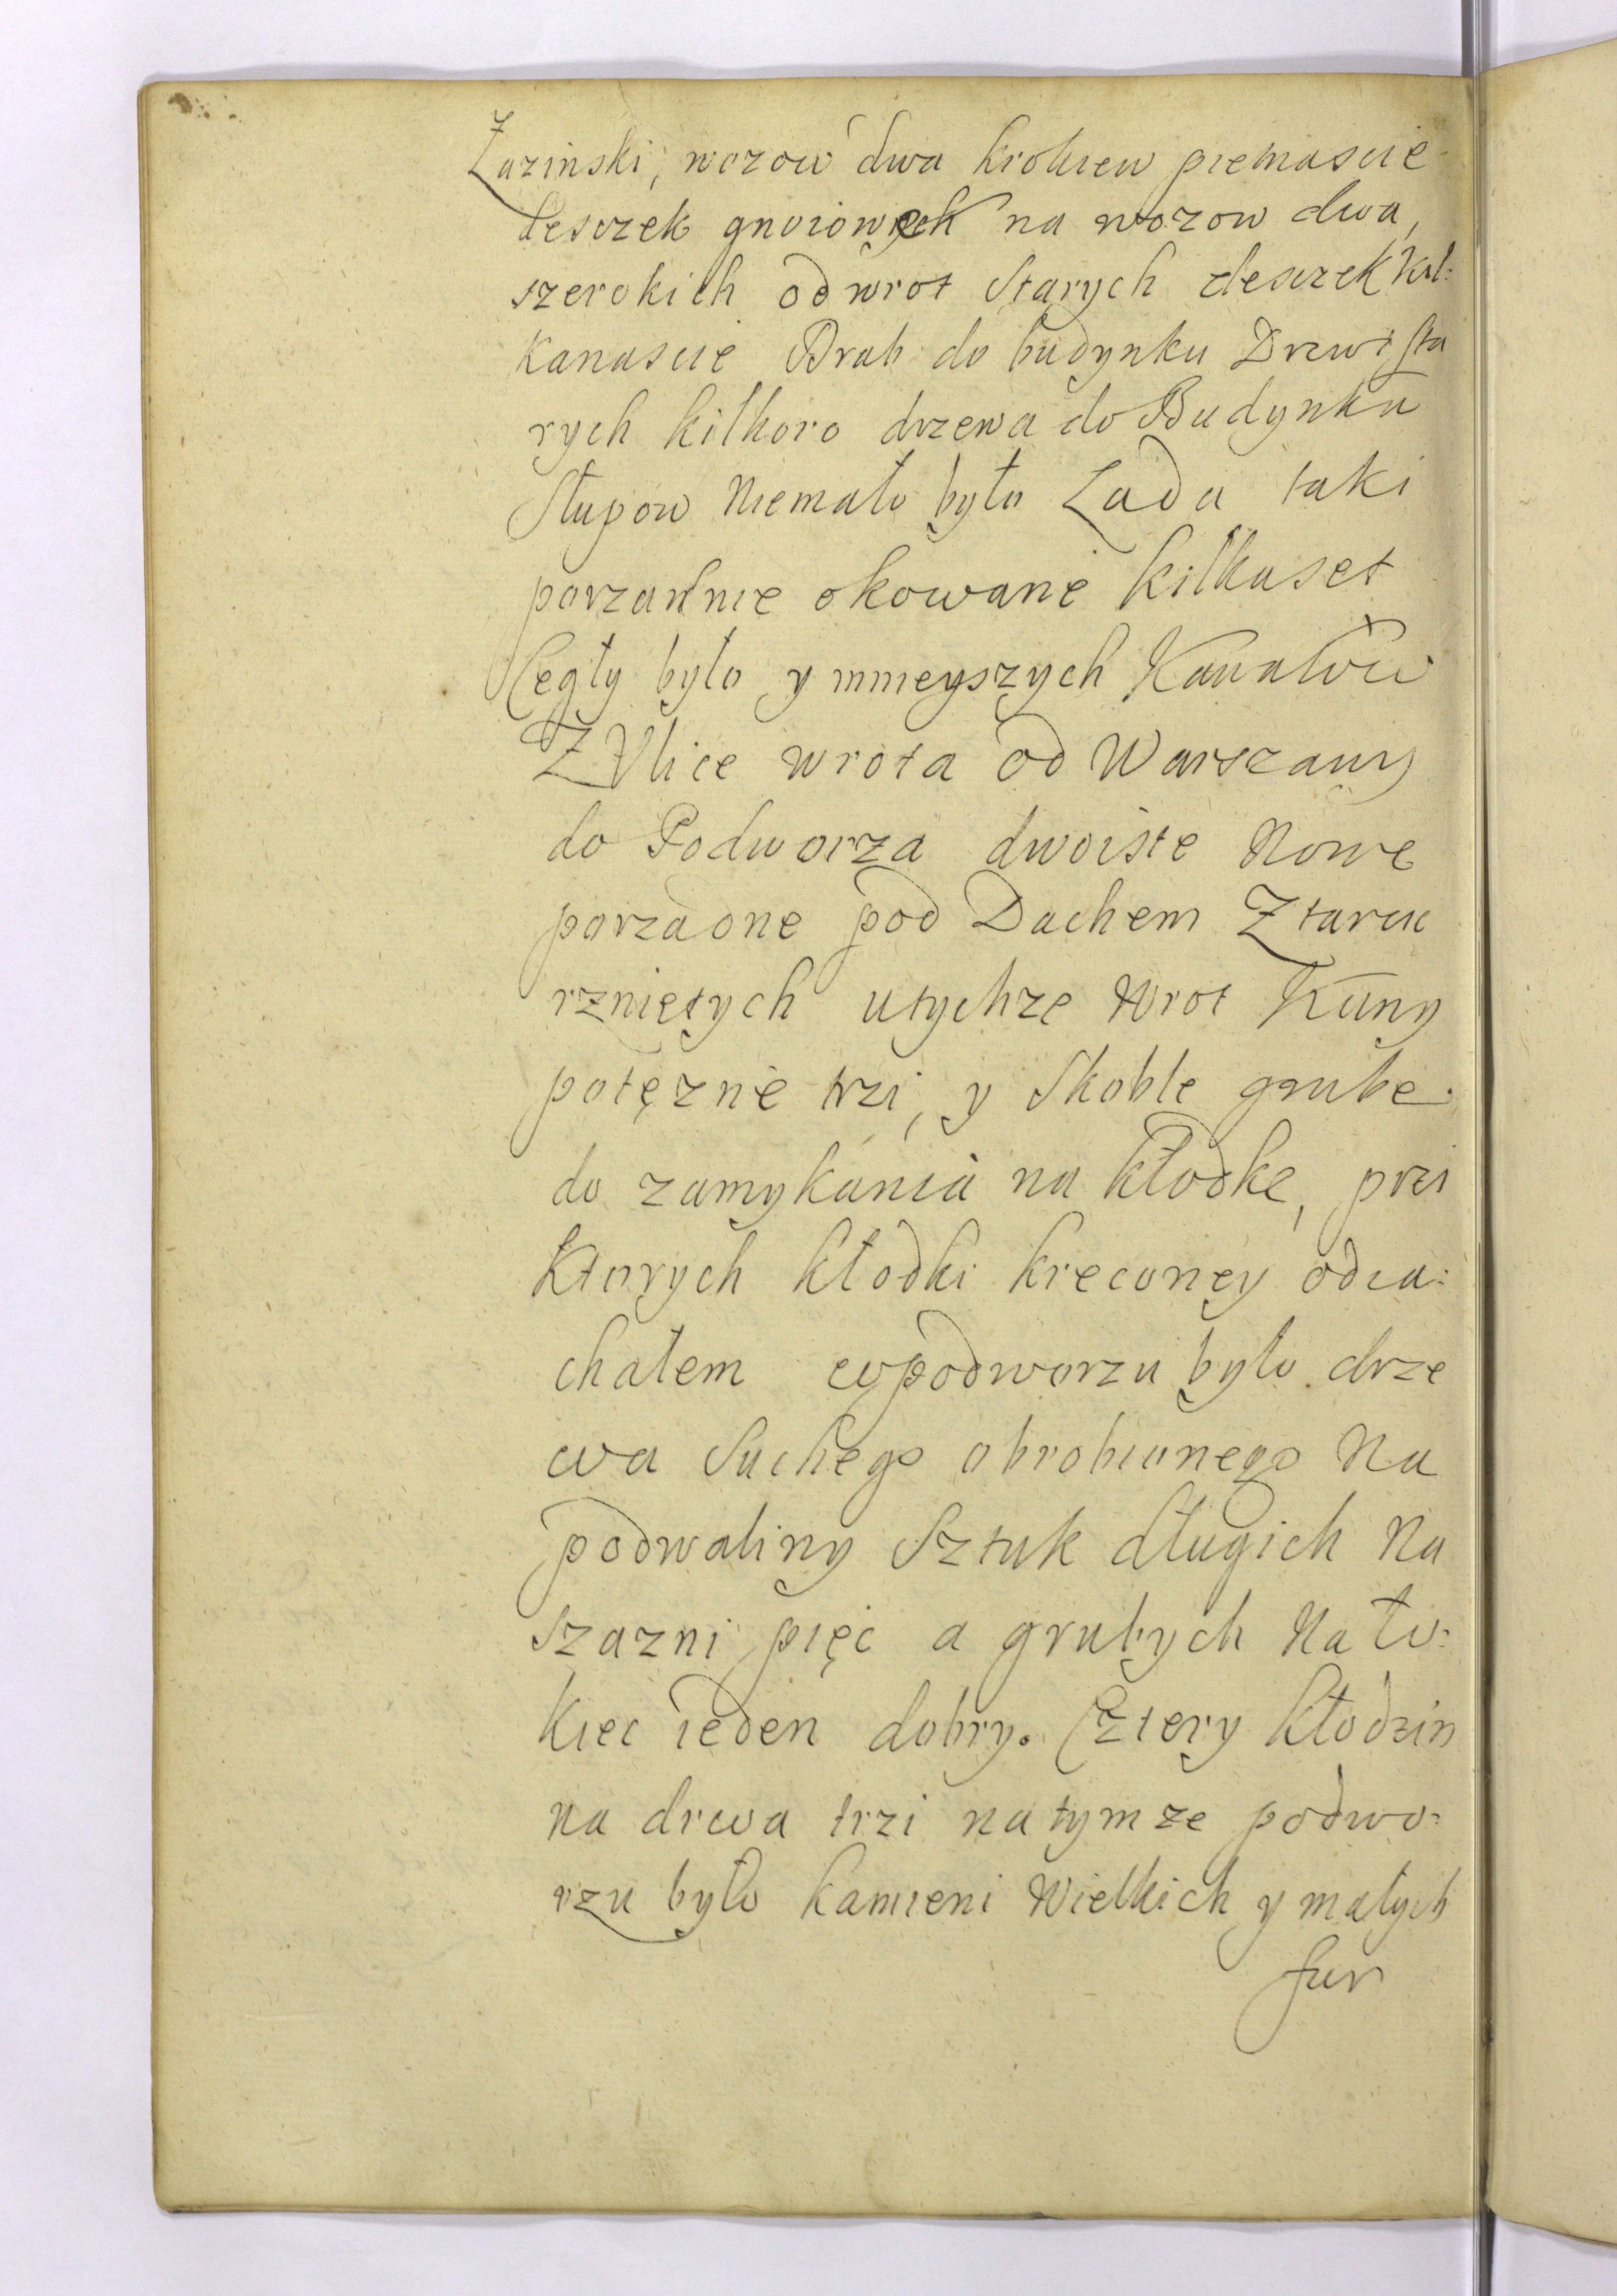 Łazinski, wozow dwa krokiew pietnascie
desczek gnoiowych na wozow dwa,
szerokich od wrot Starych desczek kil:
kanascie Brah do budynku Drzwi sta
rych kilkoro drzewa do Budynku
Słupow Niemało było Łada taki
porzadnie okowane kilkaset
Cegły było y mnieyszych Kawałow
Z Vlice wrota od Warszawy
do Podworza dwoiste Nowe
porzadne pod Dachem Ztarcic
rznietych utychze Wrot Kuny
potęzne trzi, y Skoble grube
do zamykania na kłodke, przi
Ktorych kłodki kreconey odia:
chałem wpodworzu było drze
wa Suchego obrobionego Na
podwaliny Sztuk długich Na
szazni pięc a grubych Na ło:
kiec ieden dobry. Cztery kłodzin
na drwa trzi na tymze podwo:
rzu było kamieni Wielkich y małych
fur